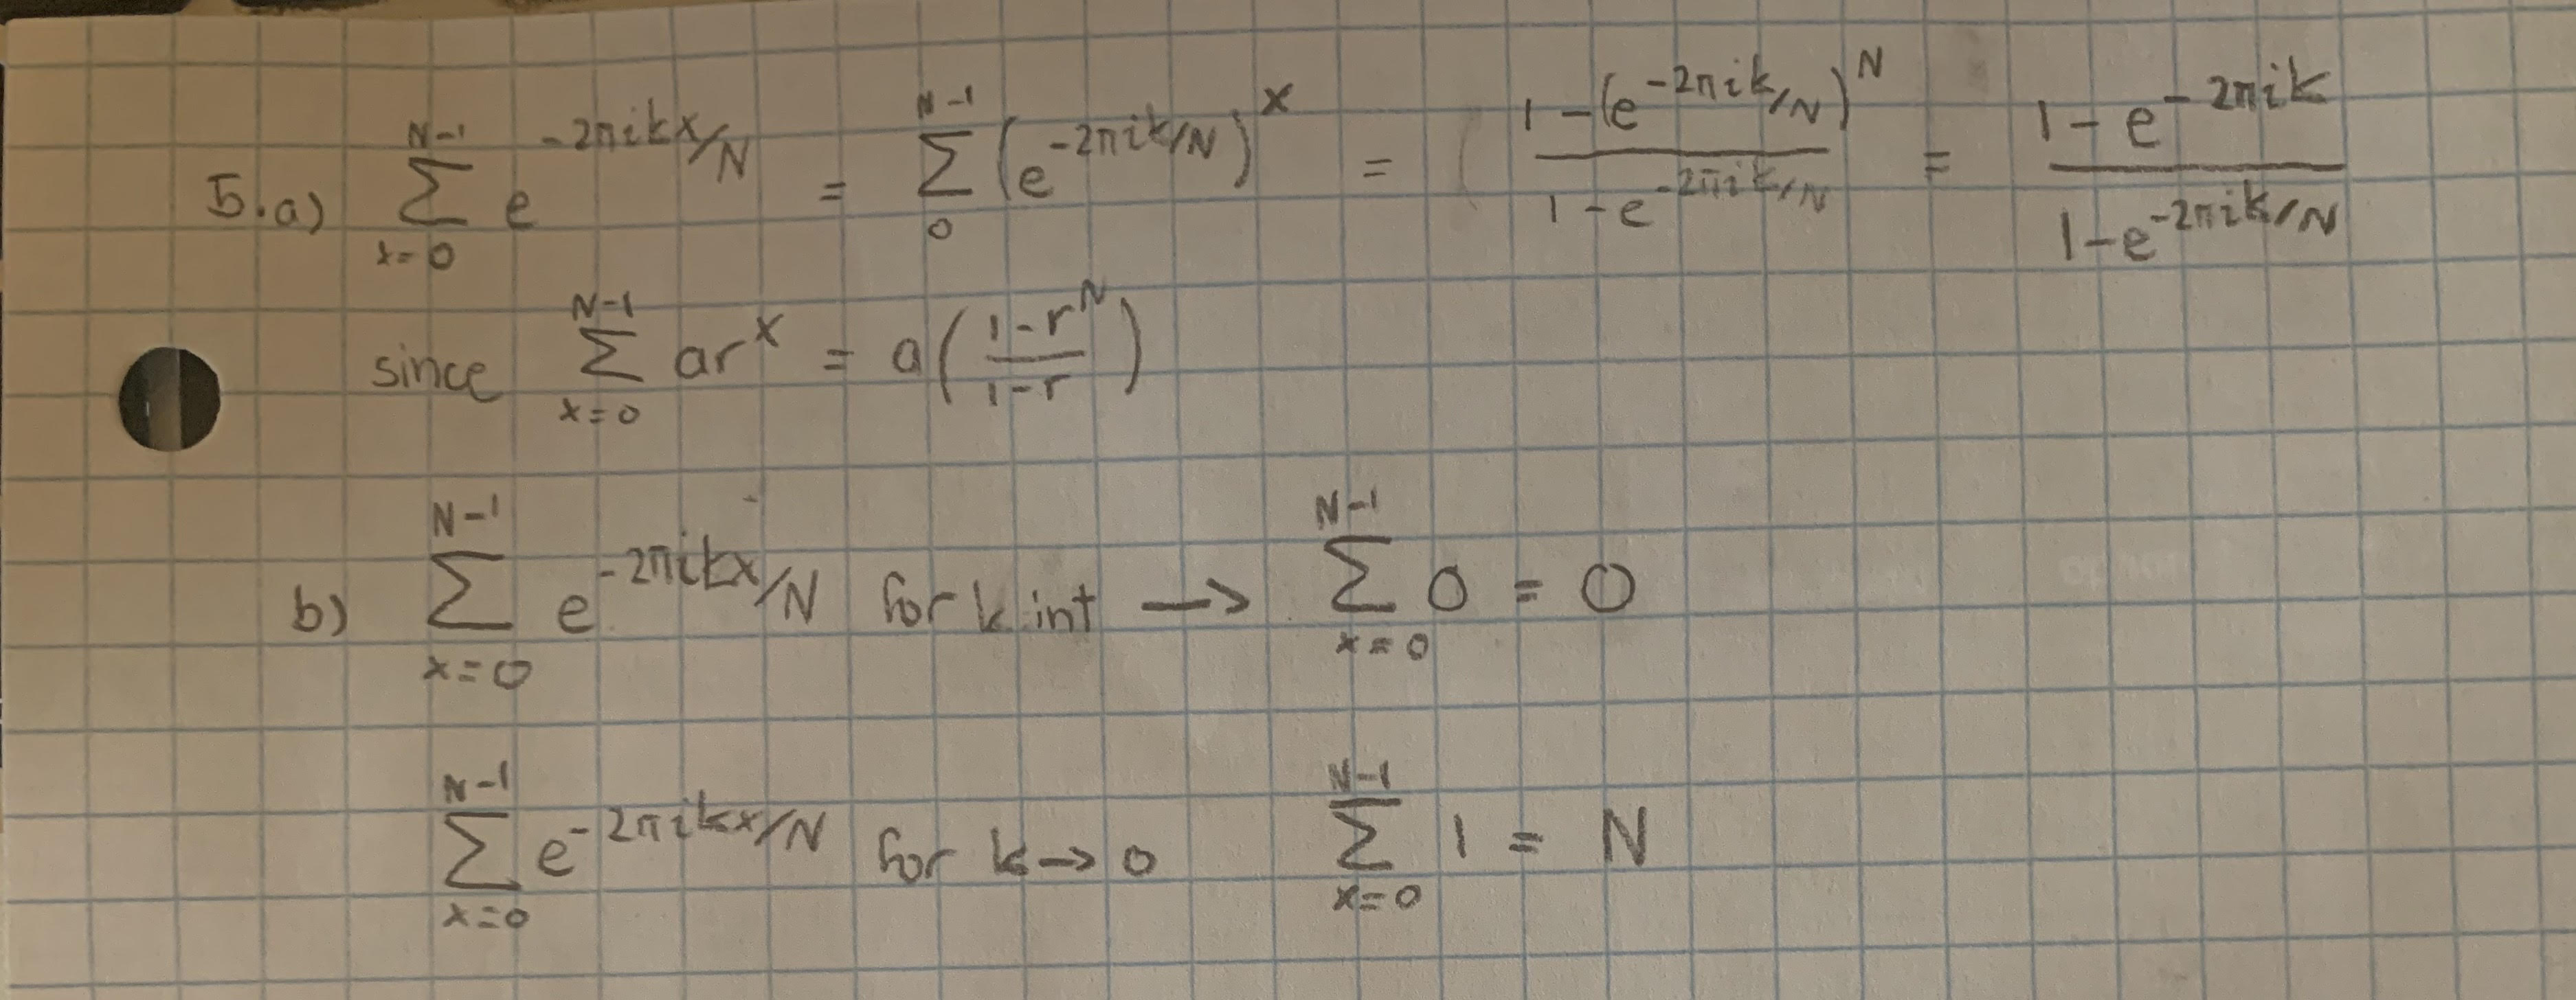 5.a) $\sum_{x=0}^{N-1} e^{-2\pi ikx/N} = \sum_{0}^{N-1} \left(e^{-2\pi ik/N}\right)^x = \frac{1-(e^{-2\pi ik/N})^N}{1-e^{-2\pi ik/N}} = \frac{1-e^{-2\pi ik}}{1-e^{-2\pi ik/N}}$
since $\sum_{x=0}^{N-1} ar^x = a\left(\frac{1-r^N}{1-r}\right)$
b) $\sum_{x=0}^{N-1} e^{-2\pi ikx/N}$ for k int $\longrightarrow \sum_{x=0}^{N-1} 0 = 0$
$\sum_{x=0}^{N-1} e^{-2\pi ikx/N}$ for $k \to 0$ $\sum_{x=0}^{N-1} 1 = N$